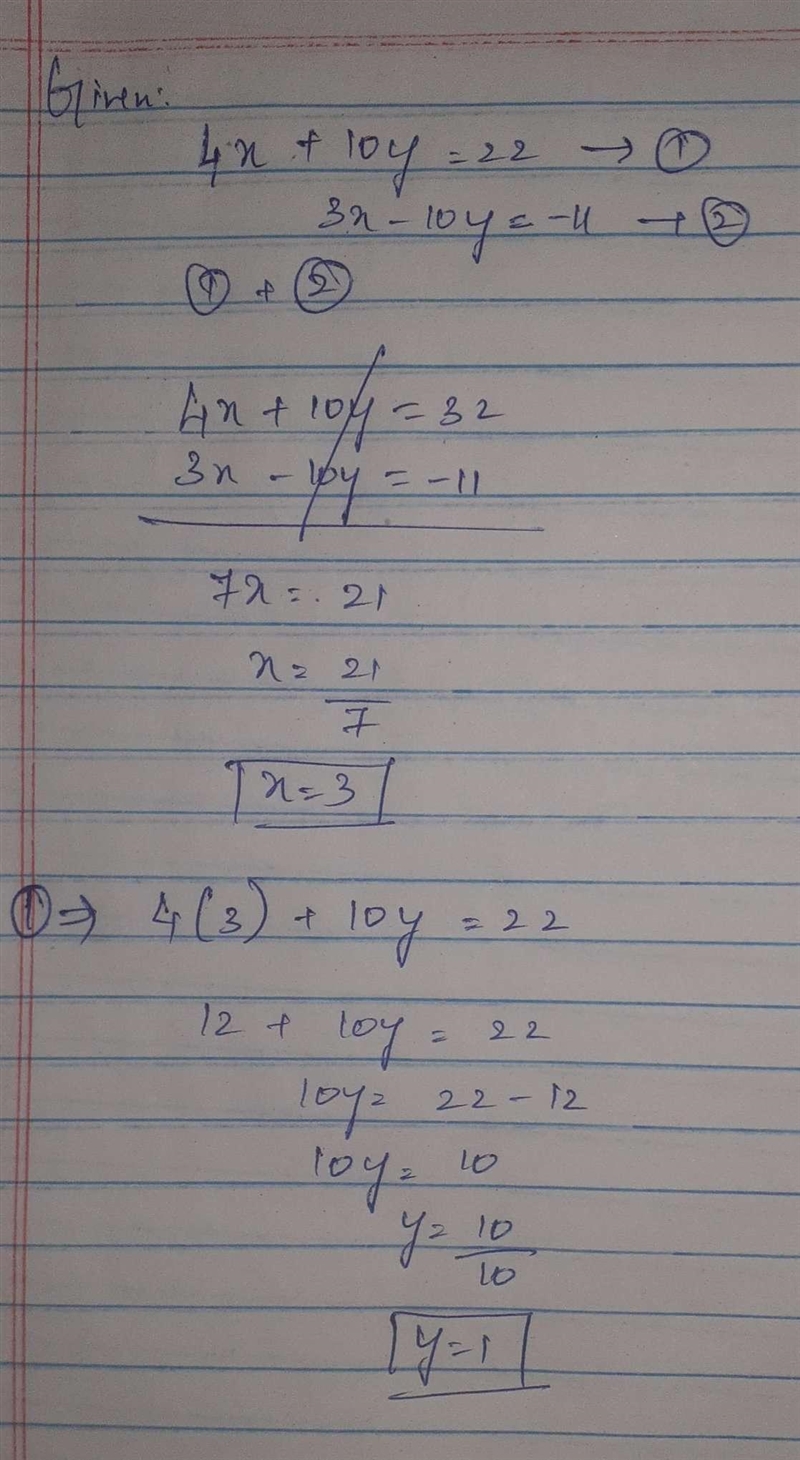 Given:
4x + 10y = 22 → ①
3x - 10y = -11 → ②
① + ②
4x + 10y = 32
3x - 10y = -11
7x = 21
x = 21
7
x = 3
① ⇒ 4(3) + 10y = 22
12 + 10y = 22
10y = 22 - 12
10y = 10
y = 10
10
y = 1